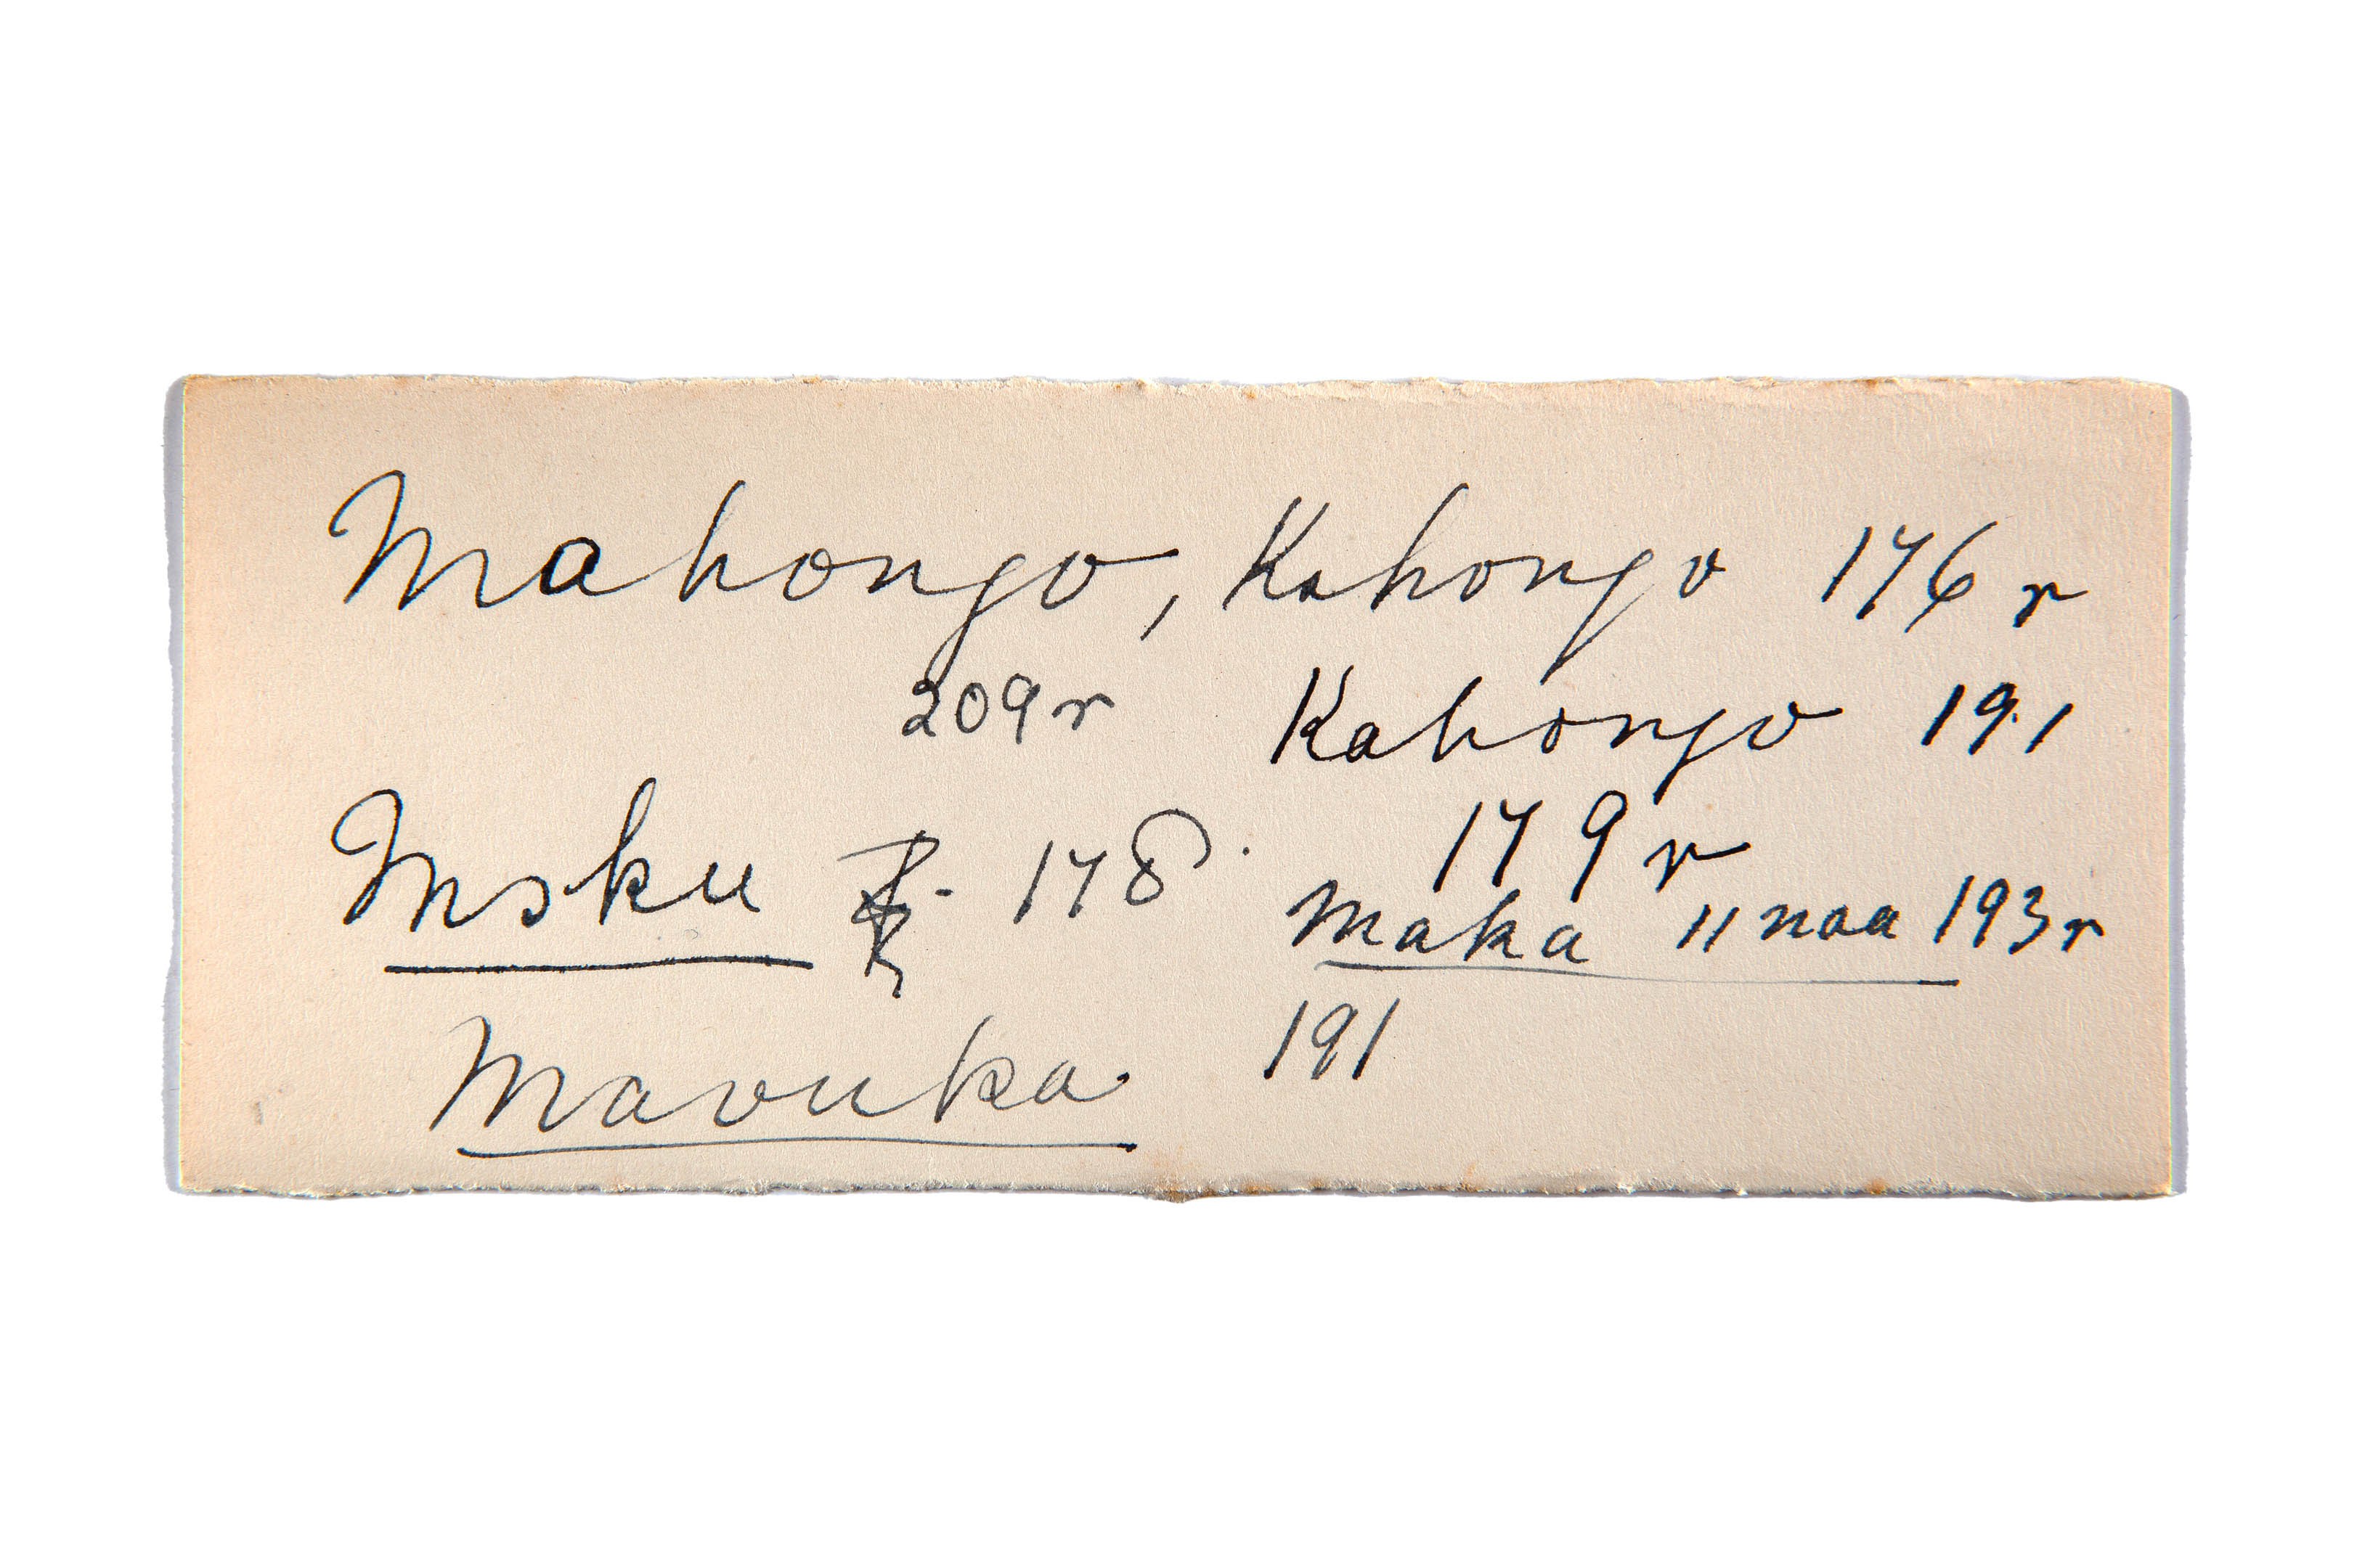 Mahongo, Kahongo 176 r
209 r Kahongo 191
179 r
Msku 178.
Maka 11 naa 193 r
Mavuka 191